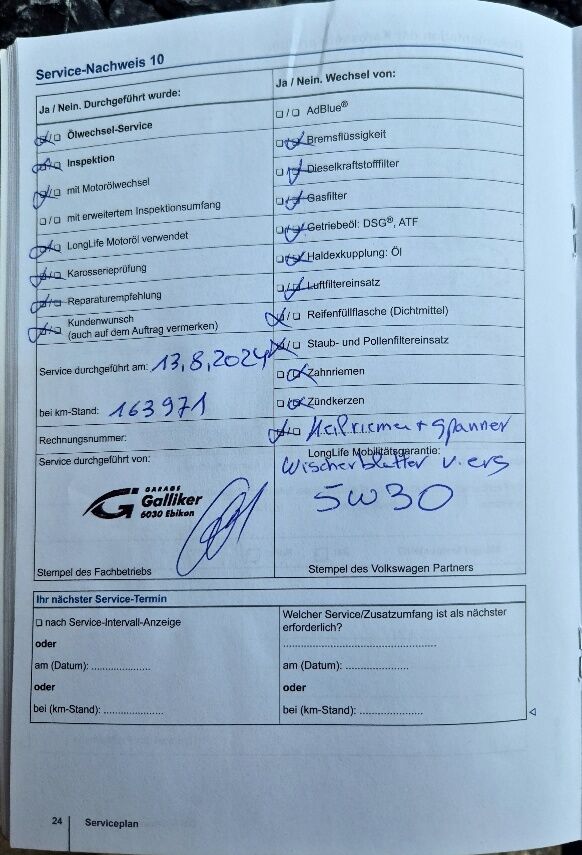 Service-Nachweis 10
Ja / Nein. Durchgeführt wurde:
Ölwechsel-Service
Inspektion
mit Motorölwechsel
mit erweitertem Inspektionsumfang
LongLife Motoröl verwendet
Karosserieprüfung
Reparaturempfehlung
Kundenwunsch
(auch auf dem Auftrag vermerken)
Service durchgeführt am: 13,8,2024
bei km-Stand: 163971
Rechnungsnummer:
Service durchgeführt von:
GARAGE
Galliker
6030 Ebikon
Stempel des Fachbetriebs
Ja / Nein. Wechsel von:
AdBlue®
Bremsflüssigkeit
Dieselkraftstofffilter
Gasfilter
Getriebeöl: DSG®, ATF
Haldexkupplung: Öl
Luftfiltereinsatz
Reifenfüllflasche (Dichtmittel)
Staub- und Pollenfiltereinsatz
Zahnriemen
Zündkerzen
Keilriemen + Spanner
LongLife Mobilitätsgarantie:
Wischerblätter v. ers
5W30
Stempel des Volkswagen Partners
Ihr nächster Service-Termin
nach Service-Intervall-Anzeige
oder
am (Datum): ....................
oder
bei (km-Stand): ....................
Welcher Service/Zusatzumfang ist als nächster
erforderlich?
....................................................
am (Datum): ......................
oder
bei (km-Stand): ......................
24
Serviceplan